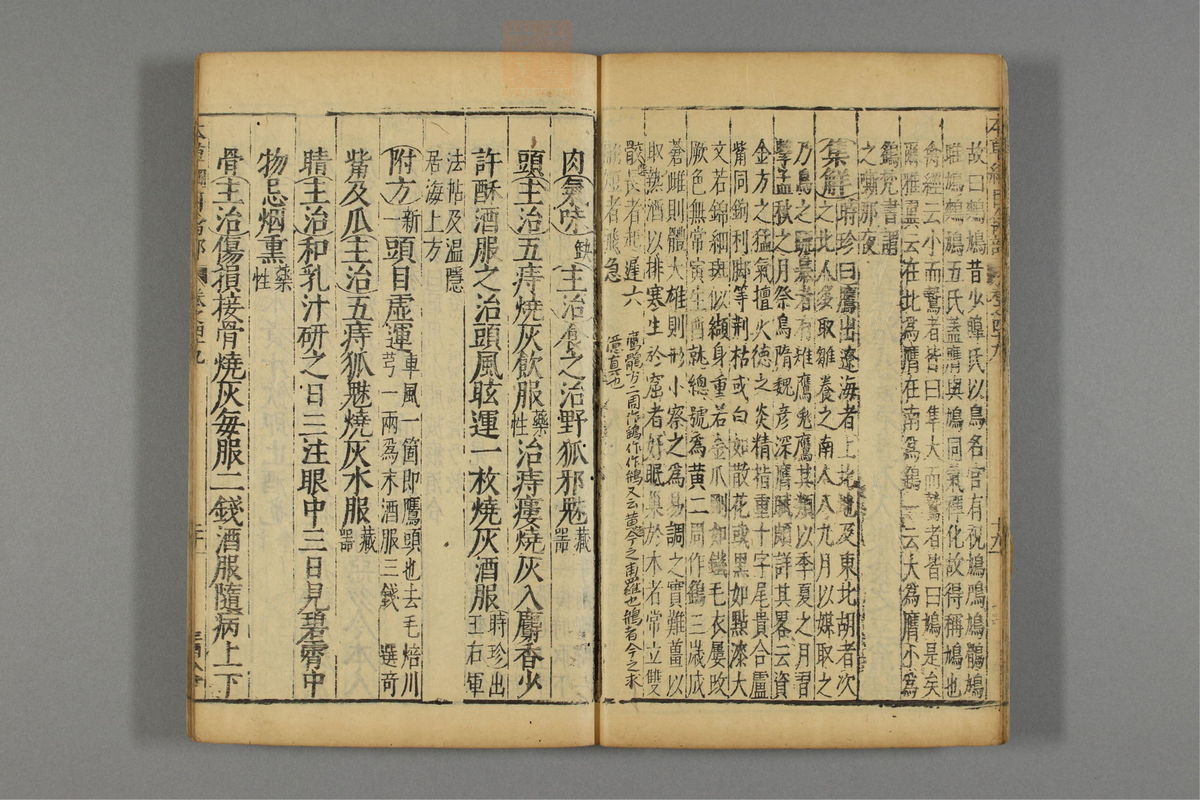 故曰鷞鳩昔少皞氏以鳥名官有祝鳩鳲鳩鶻鳩
雎鳩鷞鳩五氏蓋鷹與鳩同氣禪化故得稱鳩也
禽經云小而鷙者皆曰隼大而鷙者皆曰鳩是矣
爾雅翼云在北爲鷹在南爲鷂一云大爲鷹小爲
鷂梵書謂
之嘶那夜
集解時珍曰鷹出遼海者上北地及東北胡者次
之北人多取雛養之南人八九月以媒取之
乃鳥之疏暴者有雉鷹兎鷹其類以季夏之月習
擊孟秋之月祭鳥隋魏彦深鷹賦頗詳其畧云資
金方之猛氣擅火德之炎精指重十字尾貴合盧
觜同鉤利脚等荆枯或白如散花或黑如點漆大
文若錦細斑似纈身重若金爪剛如鐵毛衣屢改
厥色無常寅生酉就總號爲黄二周作鷂三歲成
蒼雌則體大雄則形小察之爲易調之實難薑以
取熱酒以排寒生於窟者好眠巢於木者常立雙
骹長者起遲六
翮短者飛急
肉氣味缺主治食之治野狐邪魅藏器
頭主治五痔燒灰飲服藥性治痔瘻燒灰入麝香少
許酥酒服之治頭風眩運一枚燒灰酒服時珍出王右軍
法帖及温隱
居海上方
附方新一頭目虚運車風一箇即鷹頭也去毛焙川芎一兩爲末酒服三錢 選奇
觜及瓜主治五痔狐魅燒灰水服藏器
睛主治和乳汁研之日三注眼中三日見碧霄中
物忌烟熏藥性
骨主治傷損接骨燒灰每服二錢酒服隨病上下